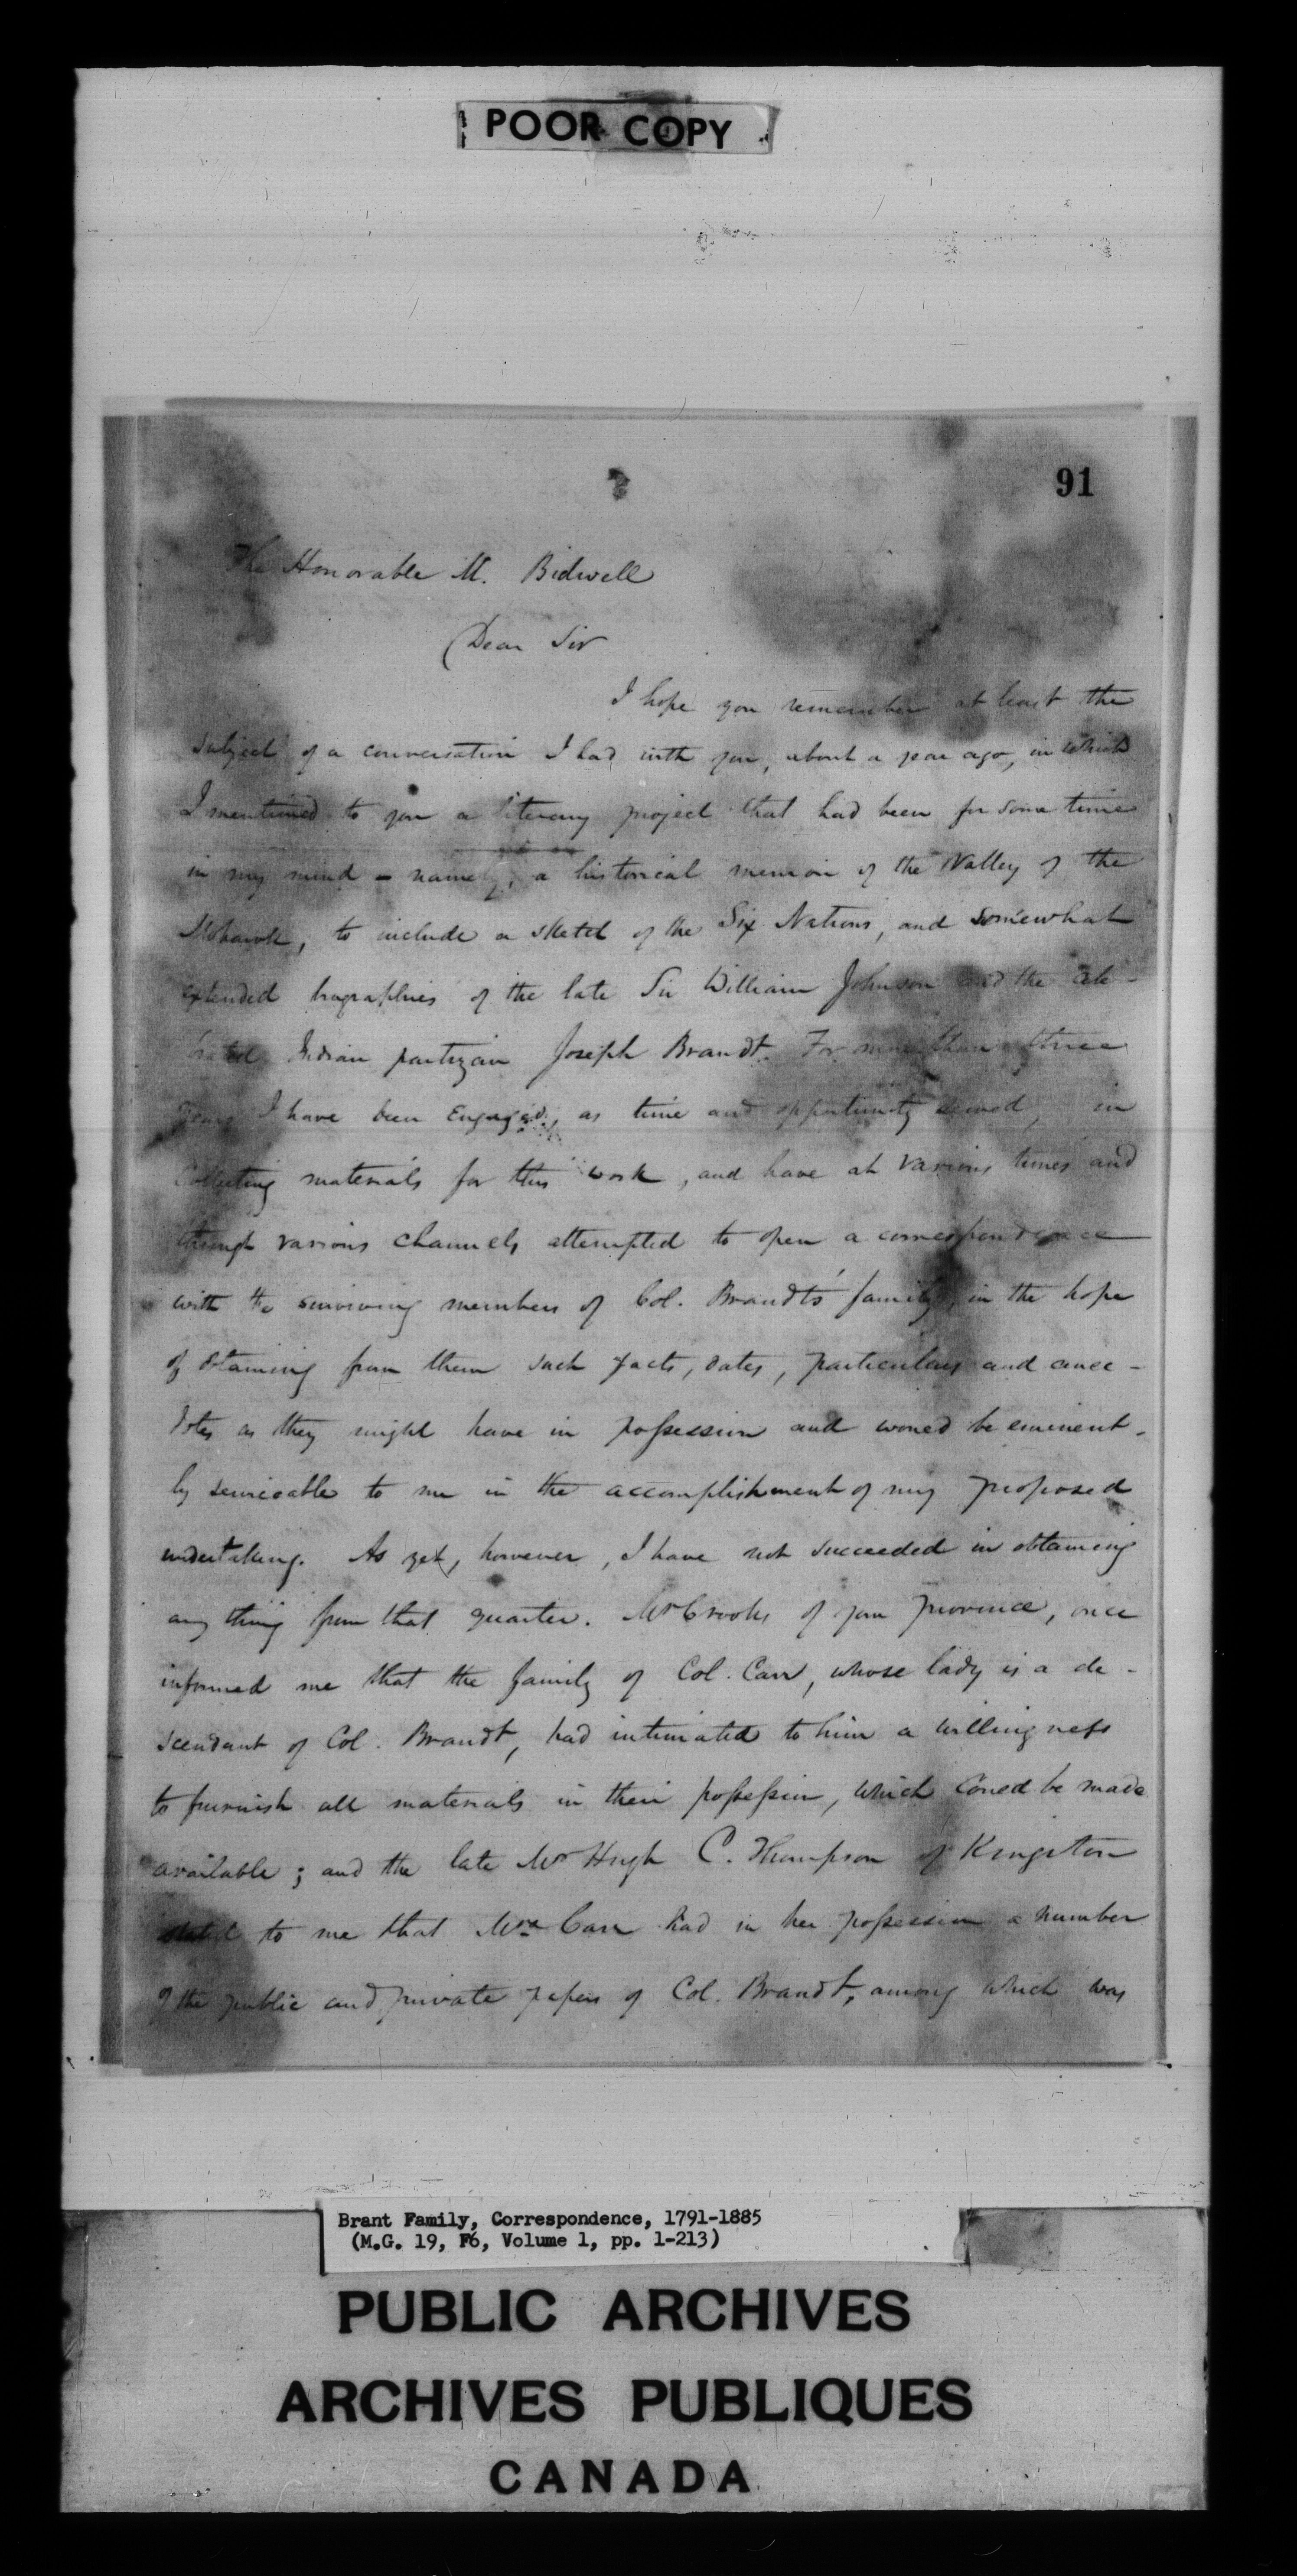 POOR COPY
91
The Honorable M. Bidwell
Dear Sir
I hope you remember at least the
subject of a conversation I had with you, about a year ago, in which
I mentioned to you a literary project that had been for some time
in my mind – namely, a historical memoir of the Valley of the
Mohawk, to include a sketch of the Six Nations, and somewhat
extended biographies of the late Sir William Johnson and the cele-
brated Indian partizan Joseph Brandt. For more than three
years I have been engaged, as time and opportunity served, in
collecting materials for this work, and have at various times and
through various channels attempted to open a correspondence
with the surviving members of Col. Brandt's family, in the hope
of obtaining from them such facts, dates, particulars and anec-
dotes as they might have in possession and would be eminent-
ly serviceable to me in the accomplishment of my proposed
undertaking. As yet, however, I have not succeeded in obtaining
any thing from that quarter. Mr Crooks of your province, once
informed me that the family of Col. Carr, whose lady is a de-
scendant of Col. Brandt, had intimated to him a willingness
to furnish all materials in their possession, which could be made
available; and the late Mr Hugh C. Thompson of Kingston
stated to me that Mrs Carr had in her possession a number
of the public and private papers of Col. Brandt, among which was
Brant Family, Correspondence, 1791-1885
(M.G. 19, F6, Volume 1, pp. 1-213)
PUBLIC ARCHIVES
ARCHIVES PUBLIQUES
CANADA